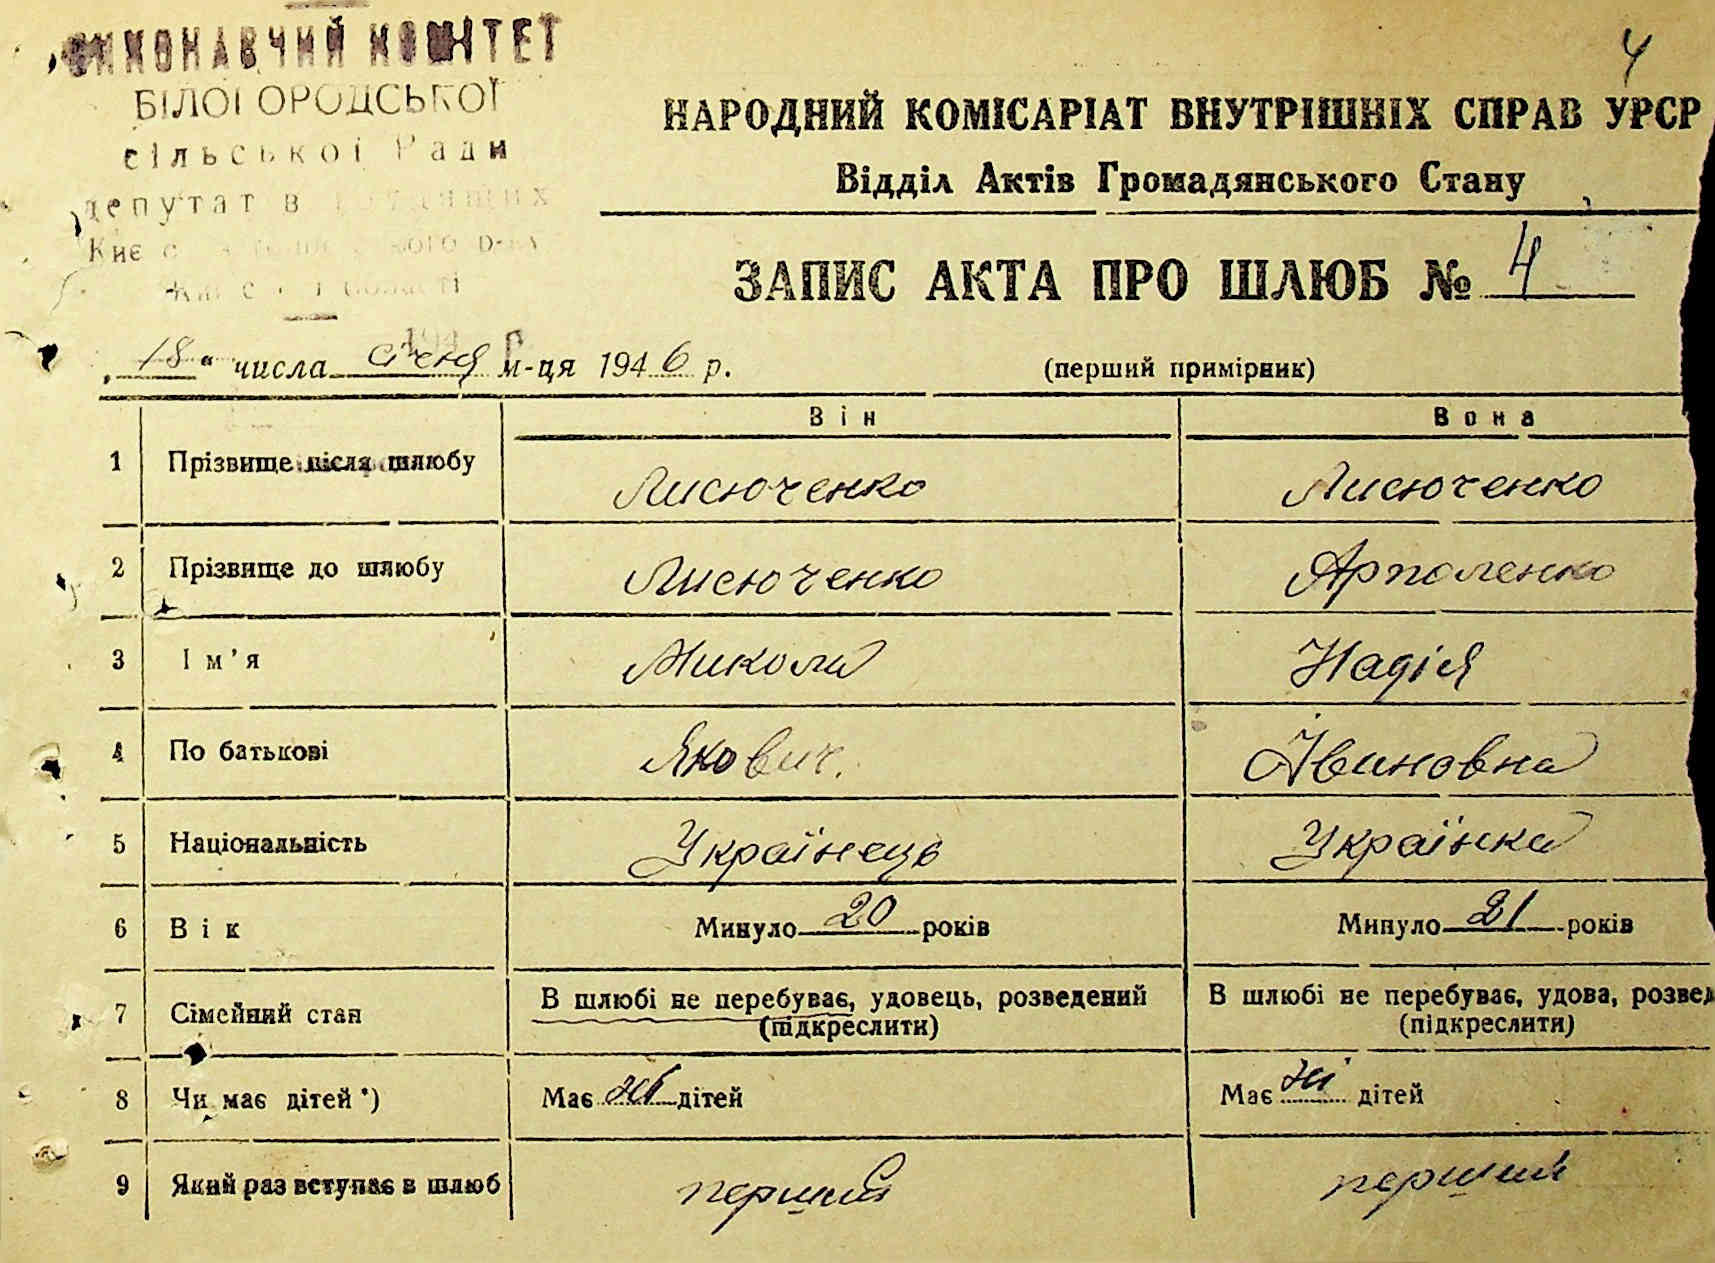 ВИКОНАВЧИЙ КОМІТЕТ
БІЛОГОРОДСЬКОЇ
сільської Ради
депутатів трудящих
Києво-Святошинського р-ну
Київської області
4
НАРОДНИЙ КОМІСАРІАТ ВНУТРІШНІХ СПРАВ УРСР
Відділ Актів Громадянського Стану
ЗАПИС АКТА ПРО ШЛЮБ № 4
„18“ числа січня м-ця 1946 р.
(перший примірник)
Він
Вона
1 Прізвище після шлюбу Лисюченко Лисюченко
2 Прізвище до шлюбу Лисюченко
3 Ім’я Микола Надія
4 По батькові Якович. Івановна
5 Національність Українець Українка
6 Вік Минуло 20 років Минуло 21 років
7 Сімейний стан В шлюбі не перебуває, удовець, розведений В шлюбі не перебуває, удова, розвед
(підкреслити) (підкреслити)
8 Чи має дітей *) Має ні дітей Має ні дітей
9 Який раз вступає в шлюб перший перший